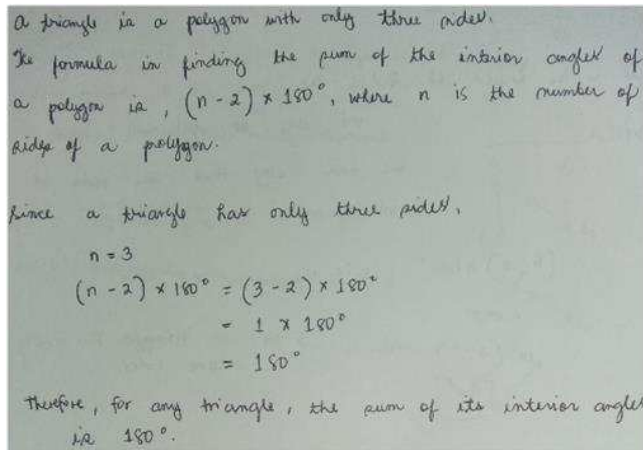 A triangle is a polygon with only three sides.
The formula in finding the sum of the interior angles of
a polygon is, (n - 2) × 180°, where n is the number of
sides of a polygon.
Since a triangle has only three sides,
n = 3
(n - 2) × 180° = (3 - 2) × 180°
= 1 × 180°
= 180°
Therefore, for any triangle, the sum of its interior angles
is 180°.